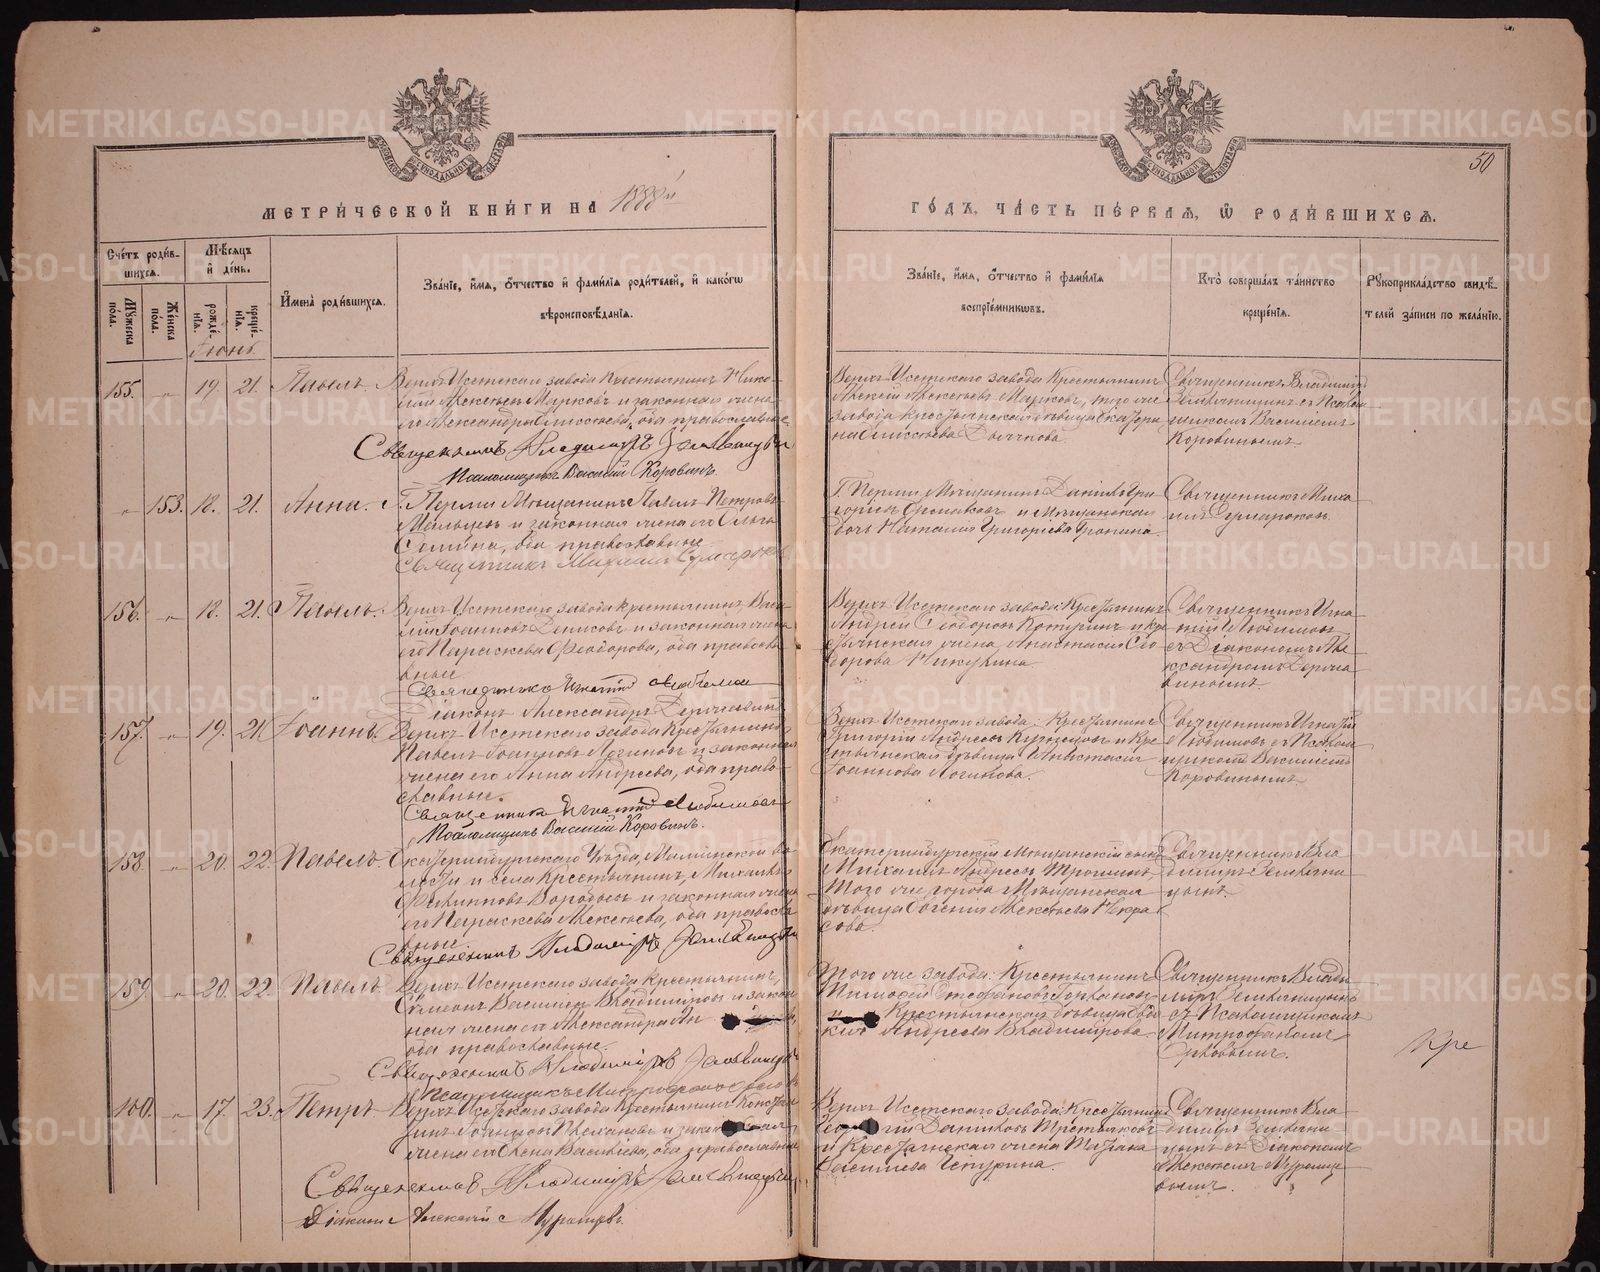 МЕТРИЧЕСКОЙ КНИГИ НА 1888й ГОДЪ, ЧАСТЬ ПЕРВАЯ, Ѿ РОДИВШИХСЯ.
50
Счетъ родив-
шихся.
Мужеска
пола.
Женска
пола.
Мѣсяцъ
и день.
рожде-
нія.
креще-
нія.
Имена родившихся.
Званіе, имя, отчество и фамилія родителей, и какогѡ
вѣроисповѣданія.
Званіе, имя, отчество и фамилія
воспріемникѡвъ.
Кто совершалъ таинство
крещенія.
Рукоприкладство свидѣ-
телей записи по желанію.
Іюнь.
155. „ 19. 21. Павелъ.
Верхъ Исетскаго завода Крестьянинъ Нико-
лай Алексѣевъ Марковъ и законная жена
его Александра Елисѣева, оба православные
Священникъ Владиміръ Земляницынъ
Псаломщикъ Василій Коровинъ.
Верхъ Исетскаго завода Крестьянинъ
Алексій Алексѣевъ Марковъ, того же
завода крестьянская дѣвица Екатери
на Елисѣева
Священникъ Владиміръ
Земляницынъ съ Псалом
щикомъ Василіемъ
Коровинымъ.
„ 153. 18. 21. Анна.
Г. Перми Мѣщанинъ Павелъ Петровъ
и законная жена его Ольга
оба православные
Священникъ Михаилъ
Г. Перми Мѣщанинъ Даніилъ Гри-
горьевъ и Мѣщанская
дочь Наталія Григорьева
Священникъ Миха
илъ
156. „ 18. 21. Павелъ.
Верхъ Исетскаго завода крестьянинъ Васи-
лій Іоанновъ Денисовъ и законная жена
его Параскева Ѳеодорова, оба правосла
вные.
Священникъ Игнатій Любимовъ
Діаконъ Александръ Державинъ
Верхъ Исетскаго завода: Крестьянинъ
Андрей Ѳеодоровъ и кре
стьянская жена Анастасія Ѳео
дорова Никулина.
Священникъ Игна
тій Любимовъ
съ Діакономъ Але
ксандромъ Держа
винымъ.
157. „ 19. 21. Іоаннъ.
Верхъ Исетскаго завода Крестьянинъ
Павелъ Іоанновъ Логиновъ и законная
жена его Анна Андреева, оба право-
славные.
Священникъ Игнатій Любимовъ
Псаломщикъ Василій Коровинъ.
Верхъ Исетскаго завода: Крестьянинъ
Григорій Андреевъ и Кре
стьянская дѣвица Анастасія
Іоаннова Логинова.
Священникъ Игнатій
Любимовъ съ Псалом
щикомъ Василіемъ
Коровинымъ.
158. „ 20. 22. Павелъ.
Екатеринбургскаго Уѣзда, Маминской во-
лости и села Крестьянинъ, Михаилъ
Филипповъ Воробьевъ и законная жена
его Параскева Алексѣева, оба правосла
вные.
Священникъ Владиміръ Земляницынъ
Екатеринбургскій Мѣщанскій сынъ
Михаилъ Андреевъ
Того же города Мѣщанская
дѣвица Евгенія Алексѣева Некра
сова.
Священникъ Вла
диміръ Земляни
цынъ.
159. „ 20. 22. Павелъ
Верхъ Исетскаго завода Крестьянинъ,
Симеонъ Васильевъ Владиміровъ и закон
ная жена его Александра
оба православные.
Священникъ Владиміръ Земляницынъ
Псаломщикъ Митрофанъ Орловъ
Того же завода: Крестьянинъ
Тимофей Стефановъ
Крестьянская дѣвица
Андреева Владимірова.
Священникъ Влади
міръ Земляницынъ
съ Псаломщикомъ
Митрофаномъ
Орловымъ.
160. „ 17. 23. Петръ
Верхъ Исетскаго завода Крестьянинъ Констан
тинъ Іоанновъ Плехановъ и законная
жена его Елена Васильева, оба православные
Священникъ Владиміръ Земляницынъ
Діаконъ Алексій
Верхъ Исетскаго завода: Крестьянинъ
Георгій Даниловъ Третьяковъ
и Крестьянская жена Татіана
Васильева
Священникъ Вла
диміръ Земляни
цынъ съ Діакономъ
Алексіемъ
METRIKI.GASO-URAL.RU